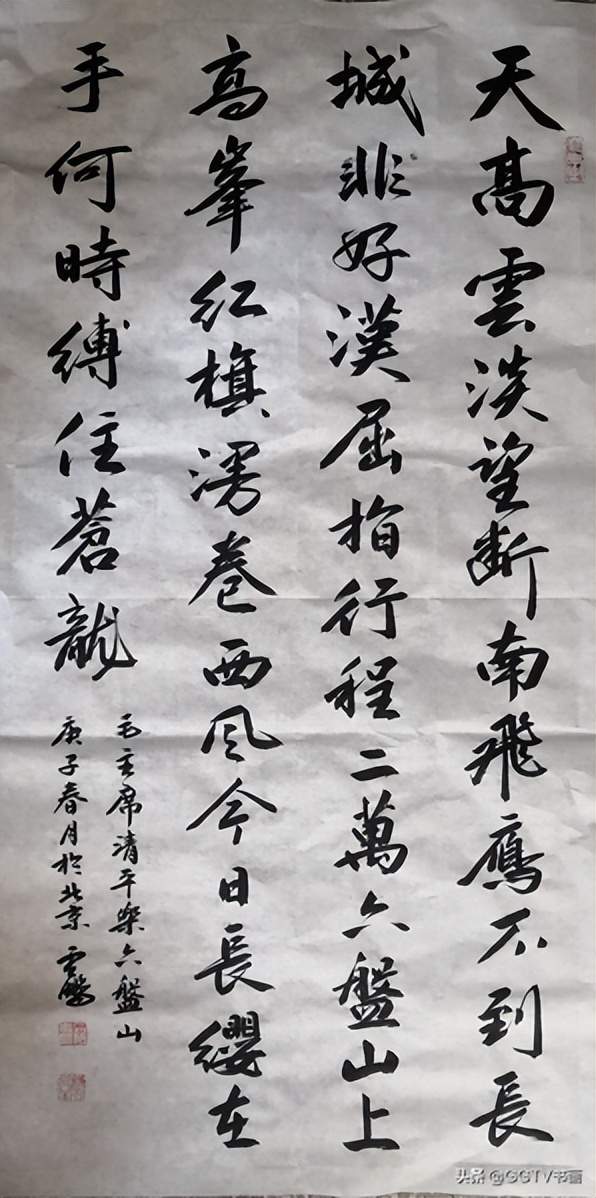 天高雲淡望断南飛鴈不到長
城非好漢屈指行程二萬六盤山上
高峯红旗漫卷西风今日長纓在
手何時縛住蒼龍
毛主席清平樂六盤山
庚子春月於北京
头条 @GGTV书画